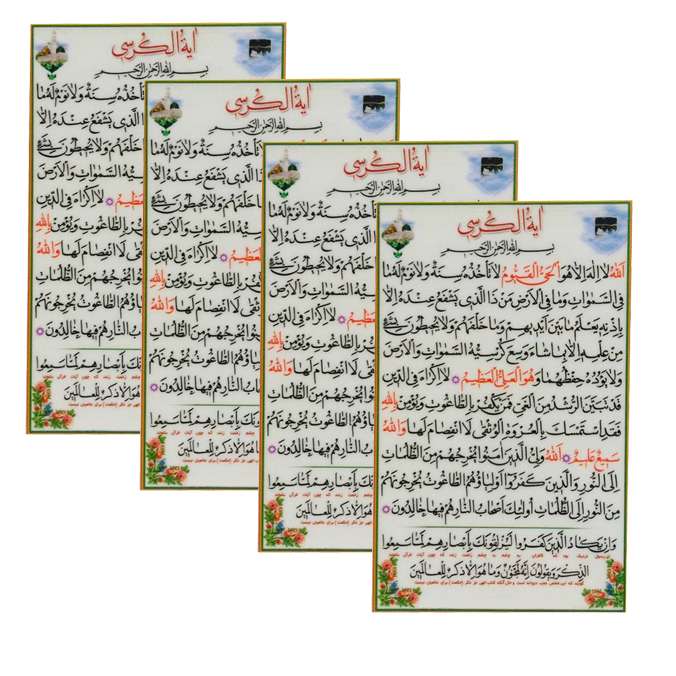 آية الكرسي
بِسْمِ اللهِ الرَّحْمٰنِ الرَّحيمِ
اَللهُ لا اِلٰهَ اِلّا هُوَ الْحَيُّ الْقَيُّومُ لا تَأْخُذُهُ سِنَةٌ وَلا نَوْمٌ لَهُ ما
فِي السَّمٰواتِ وَما فِي الْاَرْضِ مَنْ ذَا الَّذي يَشْفَعُ عِنْدَهُ اِلّا
بِاِذْنِهِ يَعْلَمُ ما بَيْنَ اَيْديهِمْ وَما خَلْفَهُمْ وَلا يُحيطُونَ بِشَيْءٍ
مِنْ عِلْمِهِ اِلّا بِما شاءَ وَسِعَ كُرْسِيُّهُ السَّمٰواتِ وَالْاَرْضَ
وَلا يَؤُدُهُ حِفْظُهُما وَهُوَ الْعَلِيُّ الْعَظيمُ لا اِكْراهَ فِي الدّينِ
قَدْ تَبَيَّنَ الرُّشْدُ مِنَ الْغَيِّ فَمَنْ يَكْفُرْ بِالطّاغُوتِ وَيُؤْمِنْ بِاللهِ
فَقَدِ اسْتَمْسَكَ بِالْعُرْوَةِ الْوُثْقىٰ لَا انْفِصامَ لَها وَاللهُ
سَميعٌ عَليمٌ اَللهُ وَلِيُّ الَّذينَ آمَنُوا يُخْرِجُهُمْ مِنَ الظُّلُماتِ
اِلَى النُّورِ وَالَّذينَ كَفَرُوا اَوْلِياؤُهُمُ الطّاغُوتُ يُخْرِجُونَهُمْ
مِنَ النُّورِ اِلَى الظُّلُماتِ اُولٰئِكَ اَصْحابُ النّارِ هُمْ فيها خالِدُونَ
وَاِنْ يَكادُ الَّذينَ كَفَرُوا لَيُزْلِقُونَكَ بِاَبْصارِهِمْ لَمّا سَمِعُوا
الذِّكْرَ وَيَقُولُونَ اِنَّهُ لَمَجْنُونٌ وَما هُوَ اِلّا ذِكْرٌ لِلْعالَمينَ